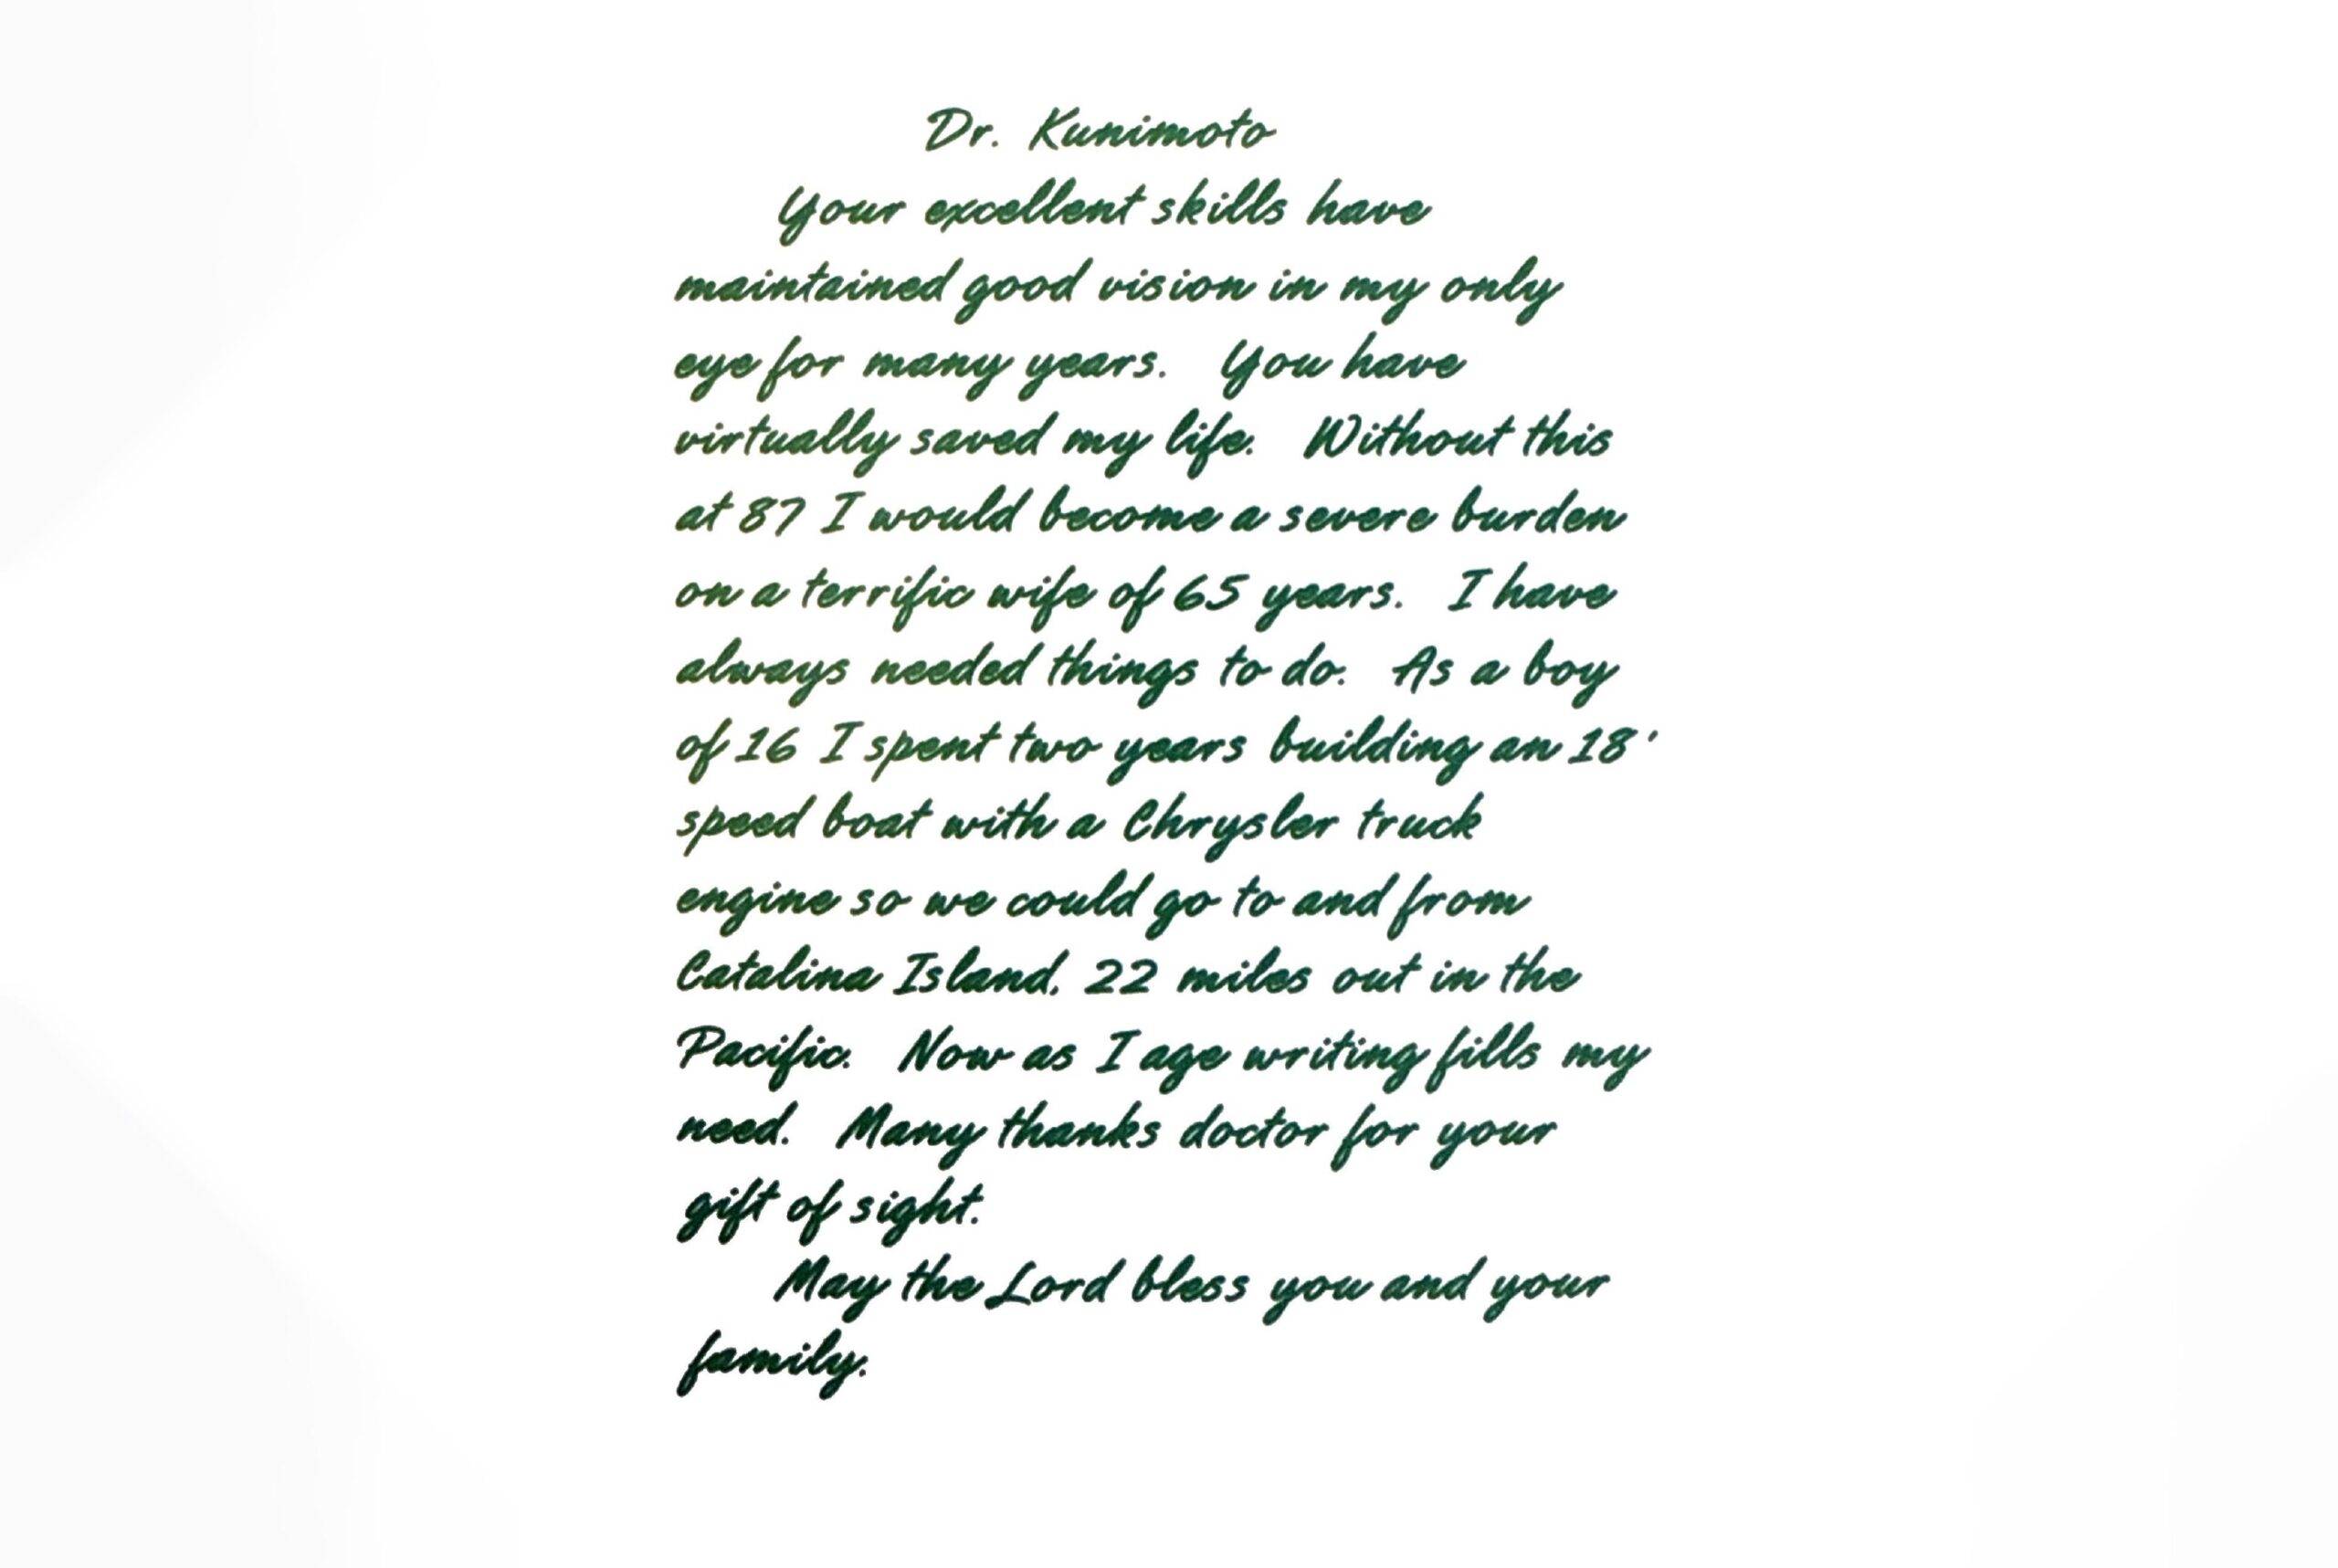 Dr. Kunimoto
Your excellent skills have
maintained good vision in my only
eye for many years. You have
virtually saved my life. Without this
at 87 I would become a severe burden
on a terrific wife of 65 years. I have
always needed things to do. As a boy
of 16 I spent two years building an 18'
speed boat with a Chrysler truck
engine so we could go to and from
Catalina Island, 22 miles out in the
Pacific. Now as I age writing fills my
need. Many thanks doctor for your
gift of sight.
May the Lord bless you and your
family.